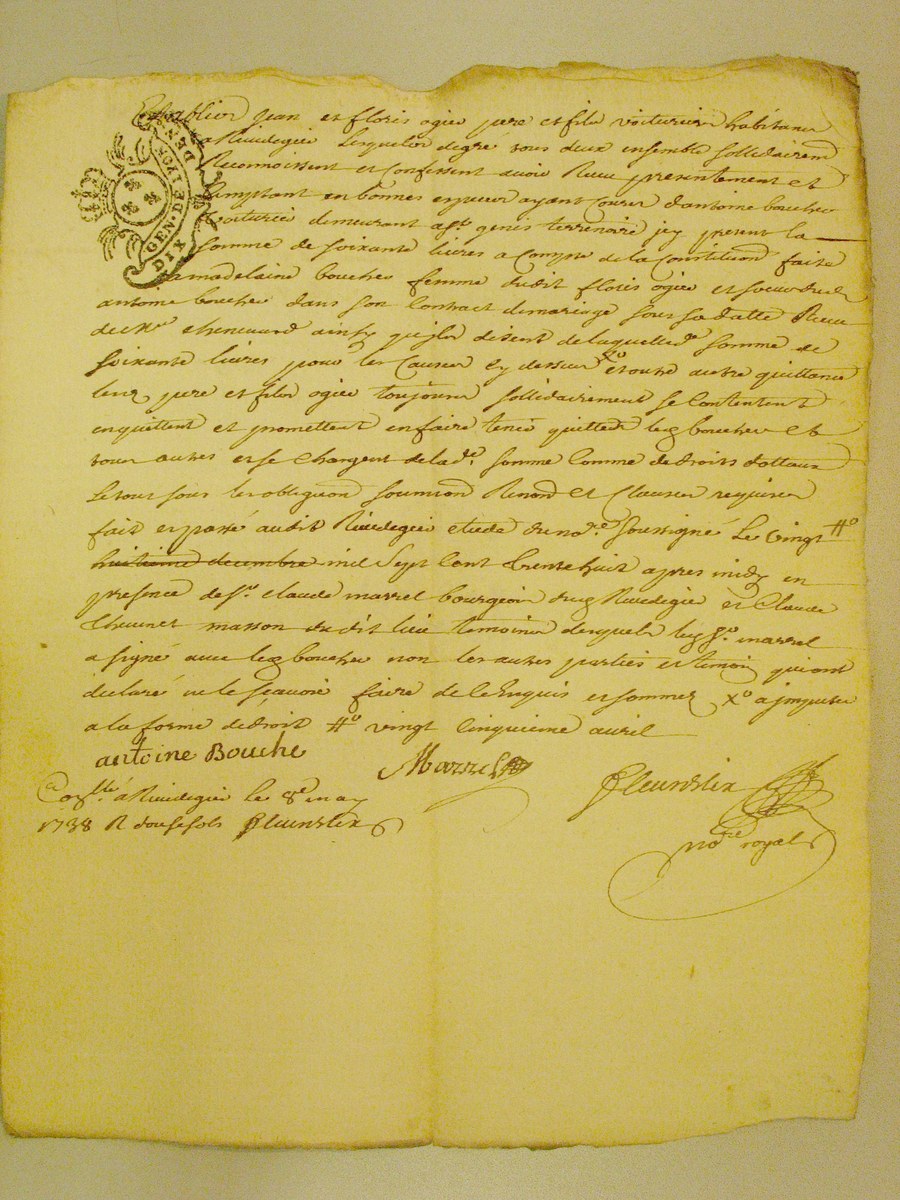 Establis Jean et floris ogier pere et fils voituriers habitans
a Rivedegier lesquels de gré tous deux ensemble sollidairem
Reconnoissent et Confessent avoir Receu presentement et
Comptant en bonnes especes ayant Cours d'antoine bouche
voiturier demeurant a st. genis terrenoire jcy present la
somme de soixante livres a Compte de la Constituon faite
a madelaine bouche femme dudit floris ogier et soeur dud
antoine bouche dans son Contract de mariage sous sa datte Receu
de Me chenevard ainsy qu'ils disent de laquelle de. somme de
soixante livres pour les Causes cy dessus Xo et toute autre quittance
lesd pere et fils ogier toujours sollidairement se Contentent
en quittent et promettent en faire tenir quitte led bouche et
tous autres et se Chargent de lade. somme Comme de droits dottaux
le tout sous les obligaons soumions Renons et Clauses requises
fait et passé audit Rivedegier etude du nore. soussigné le vingt #o
huitieme decembre mil sept Cent trente huit apres midy en
presence de sr. Claude marrel bourgeois dud Rivedegier et Claude
Chavanet masson dudit lieu temoins desquels led sr. marrel
a signé avec led bouche non les autres parties et temoin qui ont
declaré ne le sçavoir faire de ce Enquis et sommez Xo a jmputer
a la forme de droit #o vingt Cinquieme avril
antoine Bouche
Marrel
fleurdelix
nore royal
Conllé a Rivedegier le 8e may
1738 R douse sols fleurdelix
GEN. DE LYON
DIX DEN